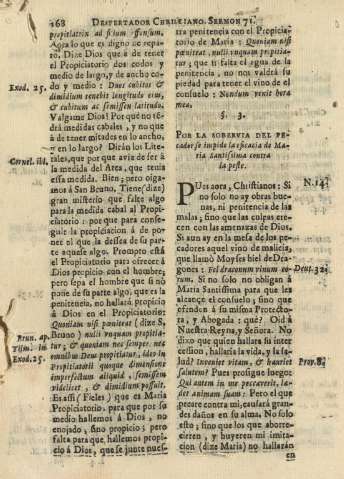 168 DESPERTADOR CHRISTIANO. SERMON 71.
propitiatrix ad istum offensum.
Agora lo que es digno de reparo.
Dize Dios que à de tener
el Propiciatorio dos codos y
medio de largo, y de ancho codo
y medio : Duos cubitos &
dimidium tenebit longitudo eius,
& cubitum ac semissem latitudo.
Exod. 25.
Valgame Dios! Por què no tédrà
medidas cabales, y no que
à de tener mitades en lo ancho,
y en lo largo? Diràn los Literales,
que por que avia de ser à
la medida del Arca, que tenia
Cornel. ibi,
essa medida. Bien; pero oigamos
à San Bruno. Tiene (dize)
gran misterio que falte algo
para la medida cabal al Propiciatorio
: por que para conseguir
la propiciacion à de poner
el que la dessea de su parte
aquèlle algo. Prompto està
el Propiciatorio para ofrecer à
Dios propicio con el hombre;
pero sepa el hombre que si no
pone de su parte algo, que es la
penitencia, no hallarà propicio
à Dios en el Propiciatorio:
Quoniam nisi pœniteat (dize S.
Bruno) nulli vnquam propitiatur,
& quoniam nec semper, nec
omnibus Deus propitiatur, ideo in
Propitiatorij quoque dimensione
imperfectum aliquid, semissem
videlicet, & dimidium posuit.
Brun. ap.
Exod. 25.
Es assi (Fieles) que es Maria
Propiciatorio, para que por su
medio hallemos à Dios, no
enojado, sino propicio; pero
falta para que hallemos propicio
à Dios, que se junte nuestra
penitencia con el Propiciatorio
de Maria : Quoniam nisi
pœniteat, nulli vnquam propitiatur;
que si falta el agua de
la penitencia, no nos valdrà su
piedad para tener el vino de el
consuelo : Nondum venit hora
mea.
§. 3.
POR LA SOBERVIA DEL PECADOR
se impide la eficacia de Maria
Santissima contra
la peste.
N. 14.
PUes aora, Christianos: Si
no solo no ay obras buenas,
ni penitencia de las
malas; sino que las culpas crecen
con las amenazas de Dios.
Si aun ay en la mesa de los pecadores
aquel vino de malicia,
que llamò Moyses hiel de Dragones
: Fel draconum vinum eorum.
Deut. 32.
Si no solo no obligan à
Maria Santissima para que les
alcançe el consuelo, sino que
ofenden à su misma Protectora,
y Abogada: què? Oid à
Nuestra Reyna, y Señora. No
dixo que quien hallara su intercession,
hallarà la vida, y la salud?
Inveniet vitam, & hauriet
salutem?
Prov. 8.
Pues prosigue luego:
Qui autem in me peccaverit, lædet
animam suam: Pero el que
pecare contra mi, causarà grandes
daños en su alma. No solo
esto; sino que los que aborrecieren,
y huyeren mi imitacion
(dize Maria) no hallaràn
en